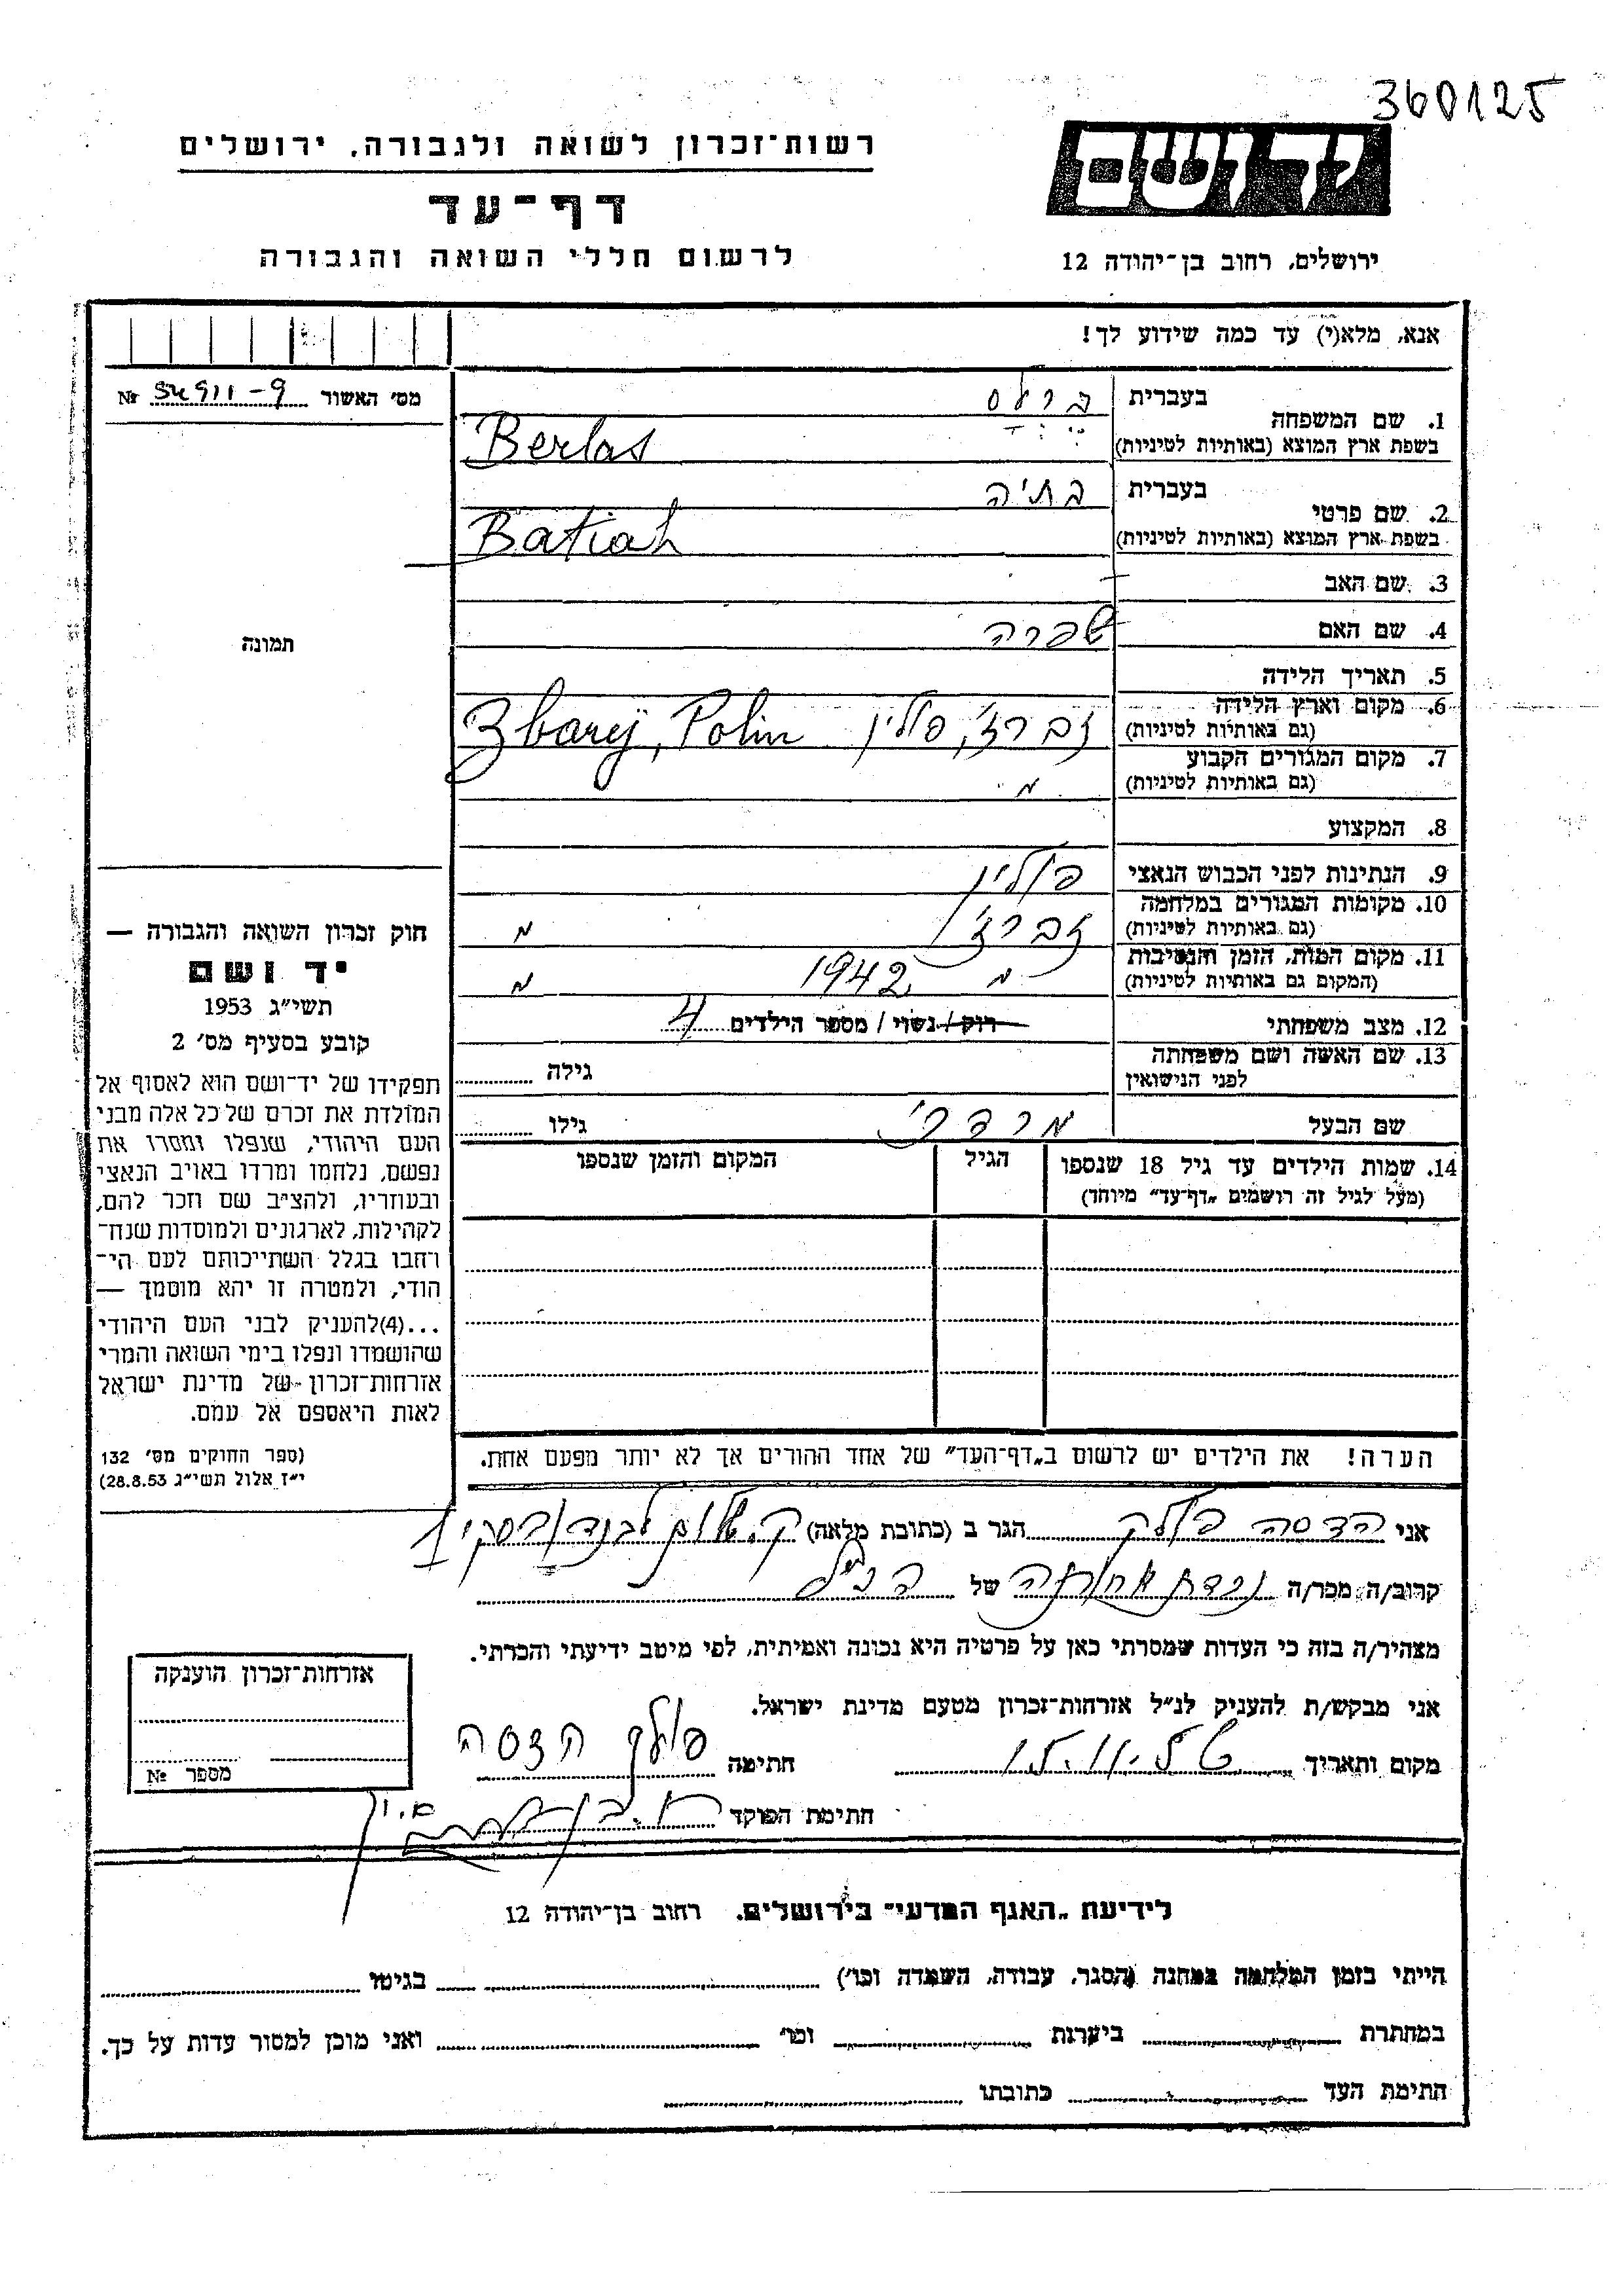 360125
יד ושם
רשות־זכרון לשואה ולגבורה, ירושלים
דף־עד
לרשום חללי השואה והגבורה
ירושלים, רחוב בן־יהודה 12
אנא, מלא(י) עד כמה שידוע לך!
מס׳ האשור 54911-9 №
תמונה
1. שם המשפחה בעברית ברלס
בשפת ארץ המוצא (באותיות לטיניות) Berlas
2. שם פרטי בעברית בתיה
בשפת ארץ המוצא (באותיות לטיניות) Batiah
3. שם האב
4. שם האם שפרה
5. תאריך הלידה
6. מקום וארץ הלידה
(גם באותיות לטיניות) זברז׳, פולין Zbarej, Polin
7. מקום המגורים הקבוע
(גם באותיות לטיניות) "
8. המקצוע
9. הנתינות לפני הכבוש הנאצי פולין
10. מקומות המגורים במלחמה
(גם באותיות לטיניות) זברז׳ "
11. מקום המות, הזמן והנסיבות
(המקום גם באותיות לטיניות) " 1942 "
12. מצב משפחתי רוק / נשוי / מספר הילדים 4
13. שם האשה ושם משפחתה
לפני הנישואין גילה
שם הבעל מרדכי גילו
14. שמות הילדים עד גיל 18 שנספו הגיל המקום והזמן שנספו
(מעל לגיל זה רושמים „דף־עד” מיוחד)
חוק זכרון השואה והגבורה —
יד ושם
תשי״ג 1953
קובע בסעיף מס׳ 2
תפקידו של יד־ושם הוא לאסוף אל
המולדת את זכרם של כל אלה מבני
העם היהודי, שנפלו ומסרו את
נפשם, נלחמו ומרדו באויב הנאצי
ובעוזריו, ולהציב שם וזכר להם,
לקהילות, לארגונים ולמוסדות שנח־
רחבו בגלל השתייכותם לעם הי־
הודי, ולמטרה זו יהא מוסמך —
...(4)להעניק לבני העם היהודי
שהושמדו ונפלו בימי השואה והמרי
אזרחות־זכרון של מדינת ישראל
לאות היאספם אל עמם.
(ספר החוקים מס׳ 132
י״ז אלול תשי״ג 28.8.53)
הערה! את הילדים יש לרשום ב„דף־העד” של אחד ההורים אך לא יותר מפעם אחת.
אני הדסה פולק הגר ב (כתובת מלאה) ק. שלום
קרוב/ה מכר/ה נכדת של הנ״ל
מצהיר/ה בזה כי העדות שמסרתי כאן על פרטיה היא נכונה ואמיתית, לפי מיטב ידיעתי והכרתי.
אני מבקש/ת להעניק לנ״ל אזרחות־זכרון מטעם מדינת ישראל.
מקום ותאריך חתימה פולק הדסה
חתימת הפוקד
אזרחות־זכרון הוענקה
מספר №
לידיעת „האגף המדעי” בירושלים, רחוב בן־יהודה 12
הייתי בזמן המלחמה במחנה (הסגר, עבודה, השמדה וכו׳) בגיטו
במחתרת ביערות וכו׳ ואני מוכן למסור עדות על כך.
חתימת העד כתובתו